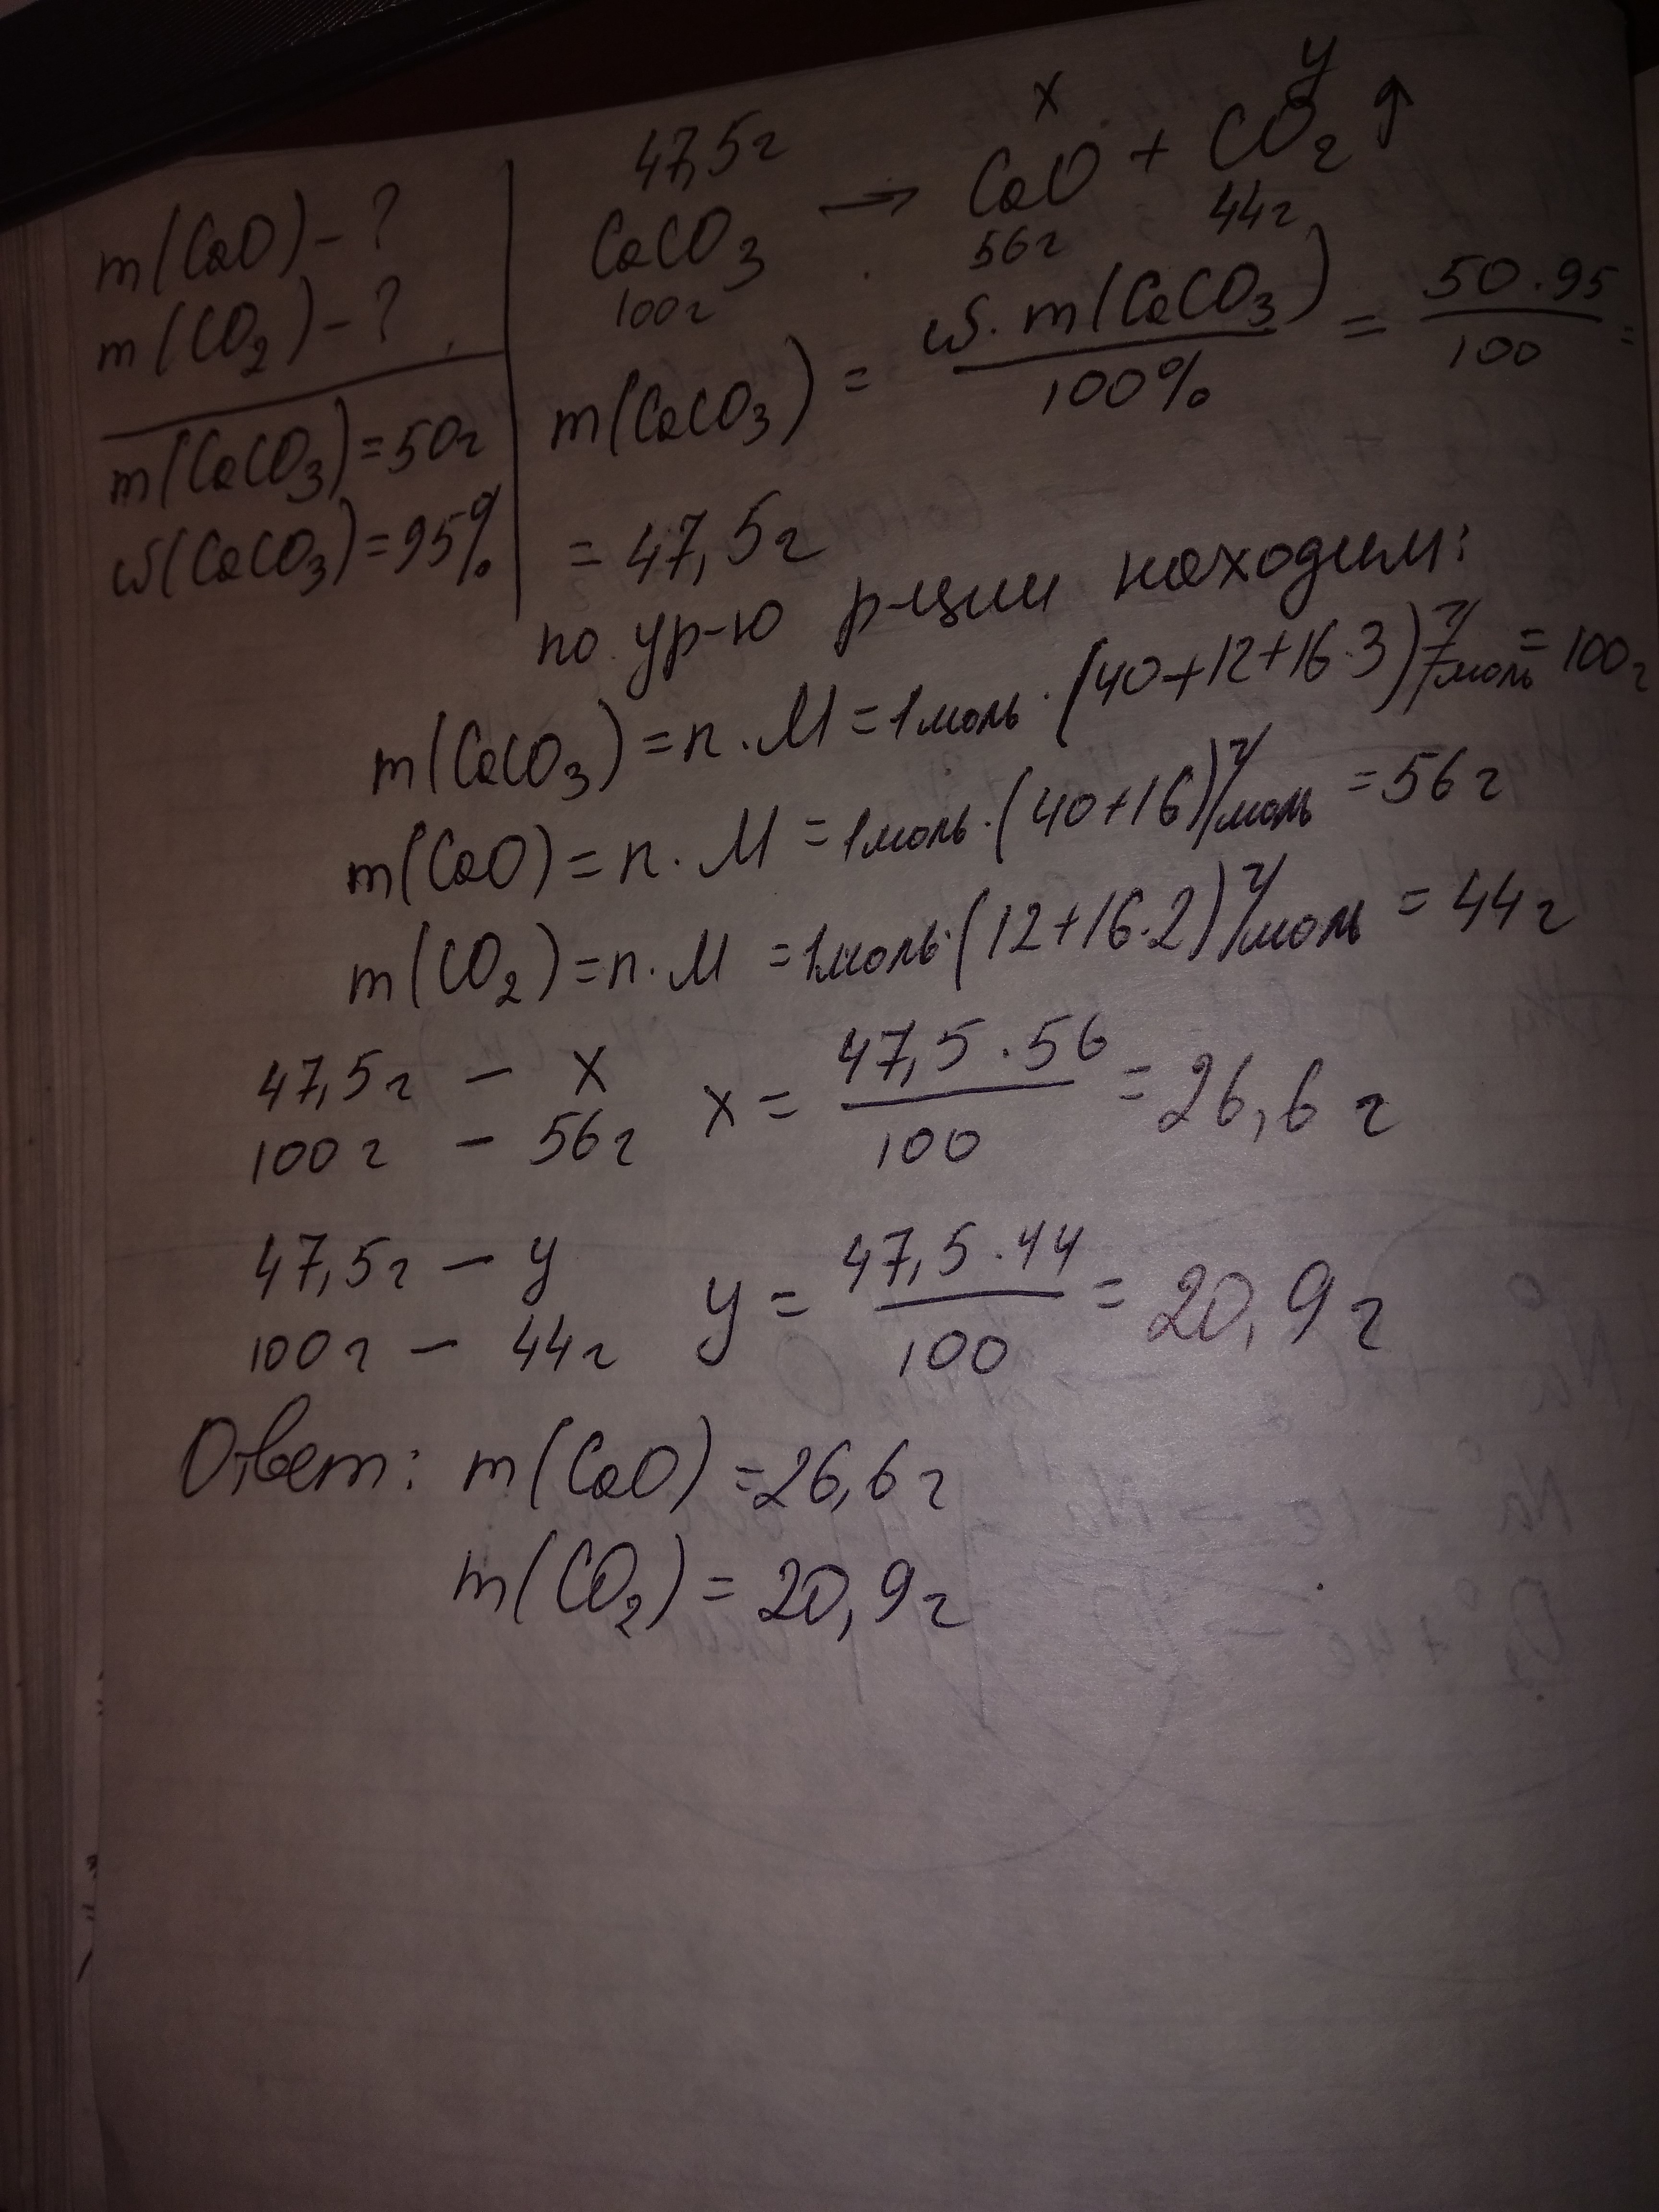 m(CaO) - ?
m(CO₂) - ?
m(CaCO₃) = 50г
ω(CaCO₃) = 95%
47,5г x y
CaCO₃ → CaO + CO₂ ↑
100г 56г 44г
m(CaCO₃) = ω · m(CaCO₃) / 100% = 50 · 95 / 100 =
= 47,5г
по ур-ю р-ции находим:
m(CaCO₃) = n · M = 1моль · (40+12+16·3) г/моль = 100г
m(CaO) = n · M = 1моль · (40+16) г/моль = 56г
m(CO₂) = n · M = 1моль · (12+16·2) г/моль = 44г
47,5г – x x = 47,5 · 56 / 100 = 26,6 г
100г – 56г
47,5г – y y = 47,5 · 44 / 100 = 20,9г
100г – 44г
Ответ: m(CaO) = 26,6г
m(CO₂) = 20,9г